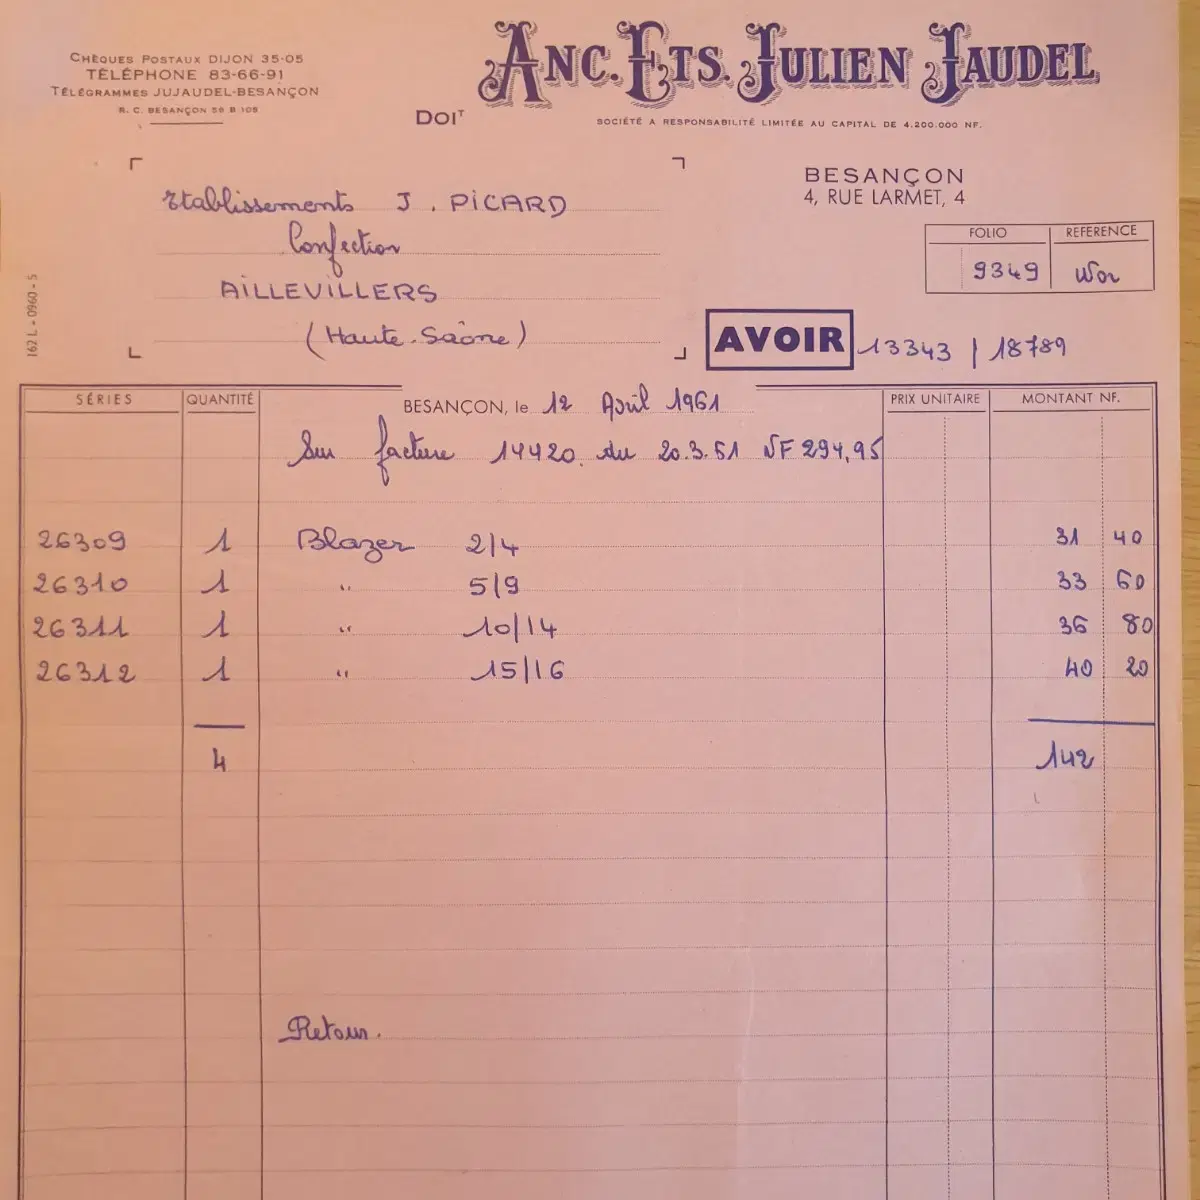 CHÈQUES POSTAUX DIJON 35-05
TÉLÉPHONE 83-66-91
TÉLÉGRAMMES JUJAUDEL-BESANÇON
R. C. BESANÇON 56 B 105
ANC. ETS. JULIEN JAUDEL
DOIT
SOCIÉTÉ A RESPONSABILITÉ LIMITÉE AU CAPITAL DE 4.200.000 NF.
BESANÇON
4, RUE LARMET, 4
Etablissements J. PICARD
Confection
AILLEVILLERS
(Haute-Saône)
162 L - 0960 - 5
FOLIO REFERENCE
9349 Wor
AVOIR 13343 / 18789
SÉRIES QUANTITÉ BESANÇON, le 12 Avril 1961 PRIX UNITAIRE MONTANT NF.
Sur facture 14420 du 20.3.61 NF 294,95
26309 1 Blazer 2/4 31 40
26310 1 " 5/9 33 60
26311 1 " 10/14 36 80
26312 1 " 15/16 40 20
4 142
Retour.